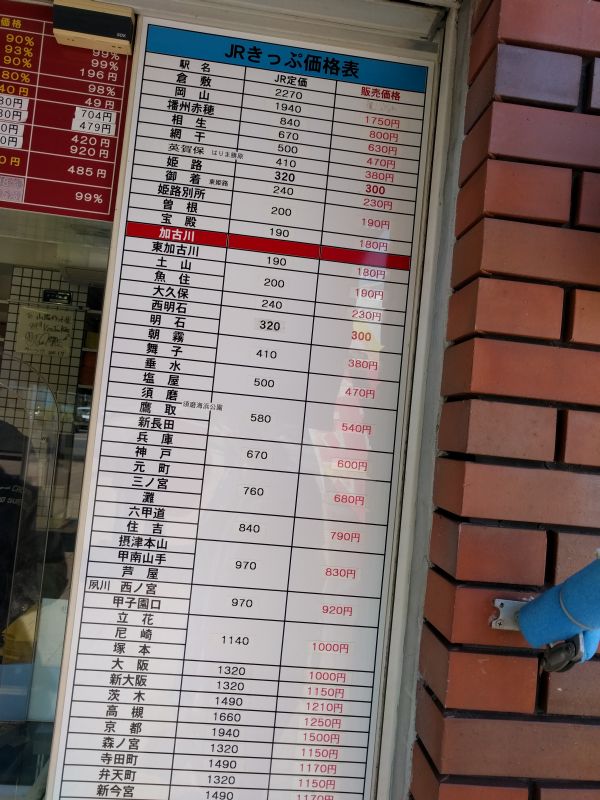 価格
90%
99%
93%
99%
90%
196円
80%
98%
40円
49円
704円
479円
420円
920円
485円
99%
JRきっぷ価格表
駅 名 JR定価 販売価格
倉 敷 2270
岡 山 1940 1750円
播州赤穂 840 800円
相 生 670 630円
網 干 500 470円
英賀保 はりま勝原 410 380円
姫 路 320 300
御 着 東姫路 240 230円
姫路別所
曽 根 200 190円
宝 殿 190 180円
加古川
東加古川 190 180円
土 山 200 190円
魚 住
大久保 240 230円
西明石 320 300
明 石
朝 霧 410 380円
舞 子
垂 水 500 470円
塩 屋
須 磨 須磨海浜公園 580 540円
鷹 取
新長田
兵 庫 670 600円
神 戸
元 町 760 680円
三ノ宮
灘
六甲道 840 790円
住 吉
摂津本山 970 830円
甲南山手
芦 屋
夙川 西ノ宮 970 920円
甲子園口
立 花 1140 1000円
尼 崎
塚 本
大 阪 1320 1000円
新大阪 1320 1150円
茨 木 1490 1210円
高 槻 1660 1250円
京 都 1940 1500円
森ノ宮 1320 1150円
寺田町 1490 1170円
弁天町 1320 1150円
新今宮 1490 1170円